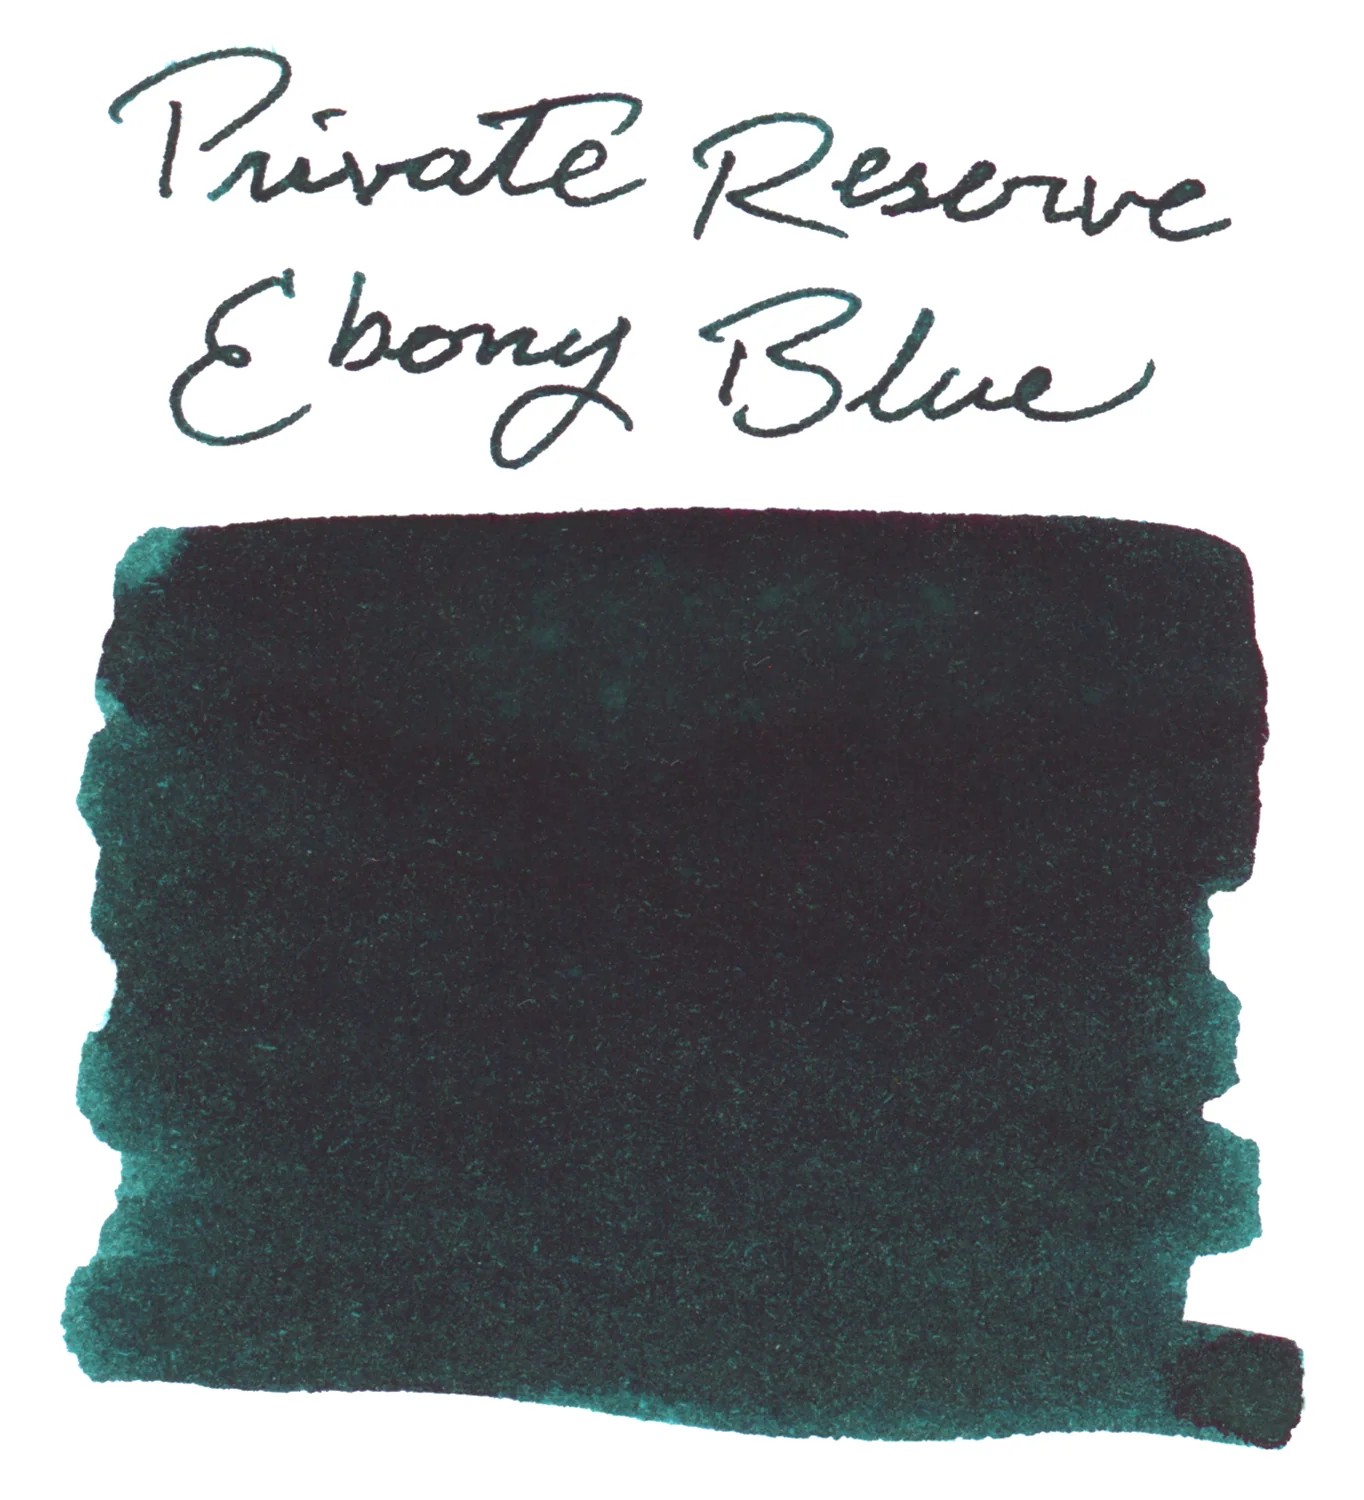 Private Reserve
Ebony Blue